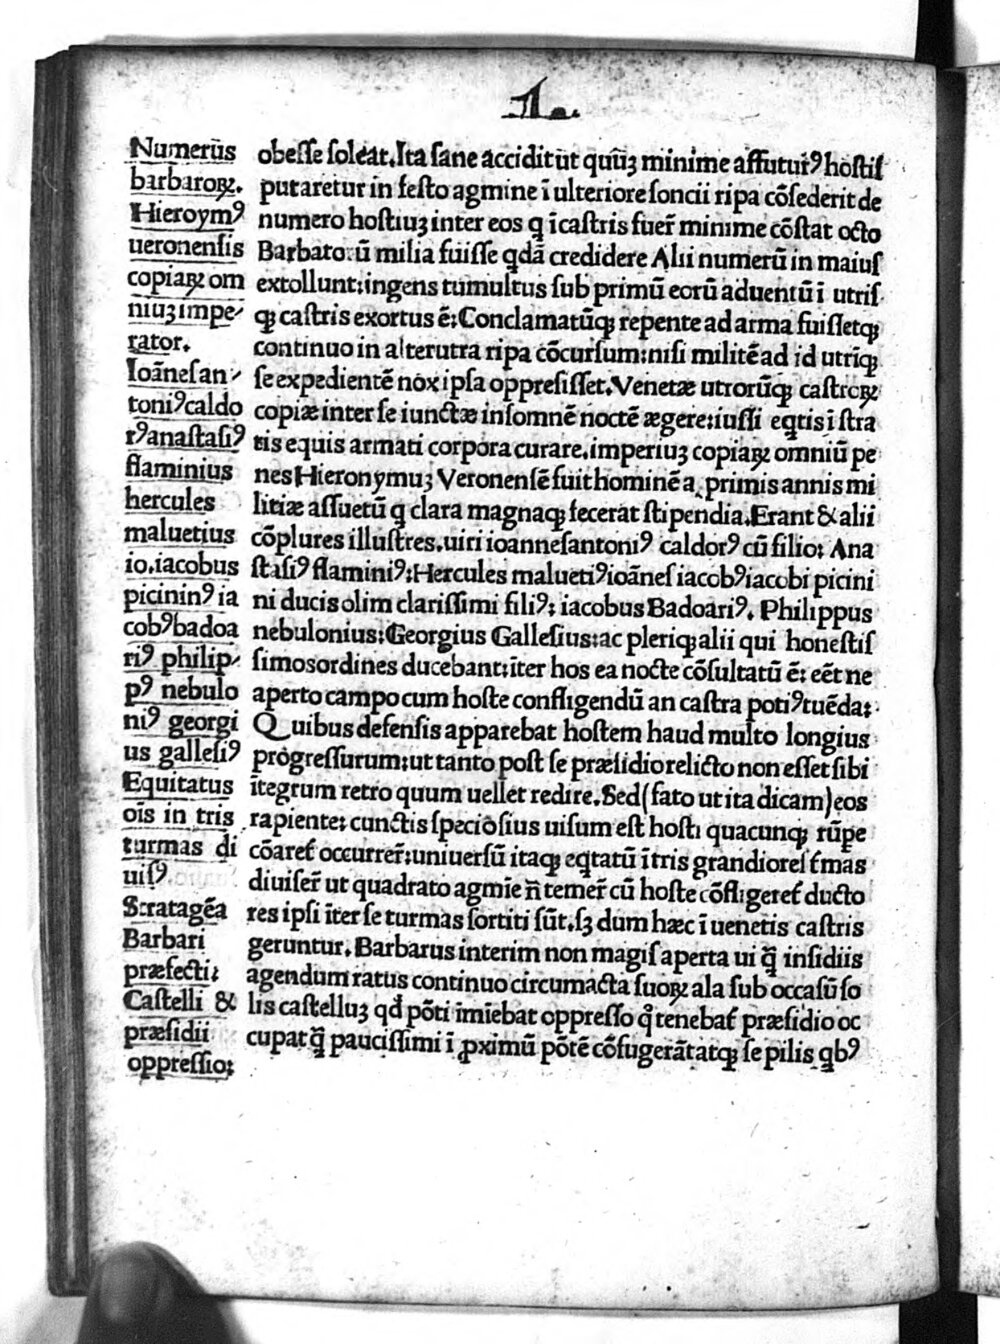 Numerūs
barbaroꝝ.
Hieroymꝰ
ueronensis
copiaꝝ om
niuꝫ impe⸗
rator.
Ioānesan⸗
toniꝰ caldo
rꝰ anastasiꝰ
flaminius
hercules
maluetius
io.iacobus
picininꝰ ia
cobꝰ badoa
riꝰ philip⸗
pꝰ nebulo
niꝰ georgi
us gallesiꝰ
Equitatus
oīs in tris
turmas di
uisꝰ
Stratagēa
Barbari
præfecti:
Castelli &
præsidii
oppressio:
obesse soleat. Ita sane accidit ut quūꝫ minime affuturꝰ hostis
putaretur in festo agmine ī ulteriore soncii ripa cōsederit de
numero hostiuꝫ inter eos q̄ ī castris fuer̄ minime cōstat octo
Barbatorū milia fuisse qdā credidere Alii numerū in maius
extollunt: ingens tumultus sub primū eorū aduentū ī utris
qꝫ castris exortus ē: Conclamatūqꝫ repente ad arma fuissetqꝫ
continuo in alterutra ripa cōcursum: nisi militē ad id utrīqꝫ
se expedientē nox ipsa oppresisset. Venetæ utrorūqꝫ castroꝝ
copiæ inter se iunctæ insomnē noctē ægere: iussi eqtis ī stra
tis equis armati corpora curare. imperiuꝫ copiaꝝ omniū pe
nes Hieronymuꝫ Veronensē fuit hominē a primis annis mi
litiæ assuetū q clara magnaqꝫ fecerat stipendia. Erant & alii
cōplures illustres. uiri ioannesantoniꝰ caldorꝰ cū filio: Ana
stasiꝰ flaminiꝰ: Hercules maluetiꝰ ioānes iacobꝰ iacobi picini
ni ducis olim clarissimi filiꝰ: iacobus Badoariꝰ. Philippus
nebulonius: Georgius Gallesius: ac pleriqꝫ alii qui honestis
simos ordines ducebant: iter hos ea nocte cōsultatū ē: eēt ne
aperto campo cum hoste confligendū an castra potiꝰ tuēda:
Quibus defensis apparebat hostem haud multo longius
progressurum: ut tanto post se præsidio relicto non esset sibi
ītegrum retro quum uellet redire. Sed (fato ut ita dicam) eos
rapiente: cunctis speciosius uisum est hosti quacunqꝫ rūpe
cōaret̄ occurrer̄: uniuersū itaqꝫ eqtatū ī tris grandiores t̄mas
diuiser̄ ut quadrato agmīe n̄ temer̄ cū hoste cōfligeret̄ ducto
res ipsi īter se turmas sortiti sūt. sꝫ dum hæc ī uenetis castris
geruntur. Barbarus interim non magis aperta ui q̄ insidiis
agendum ratus continuo circumacta suoꝝ ala sub occasū so
lis castelluꝫ qd̄ pōti īmiebat oppresso q̄ tenebat̄ præsidio oc
cupat q̄ paucissimi ī ꝓximū pōtē cōfugerātatqꝫ se pilis qbꝰ